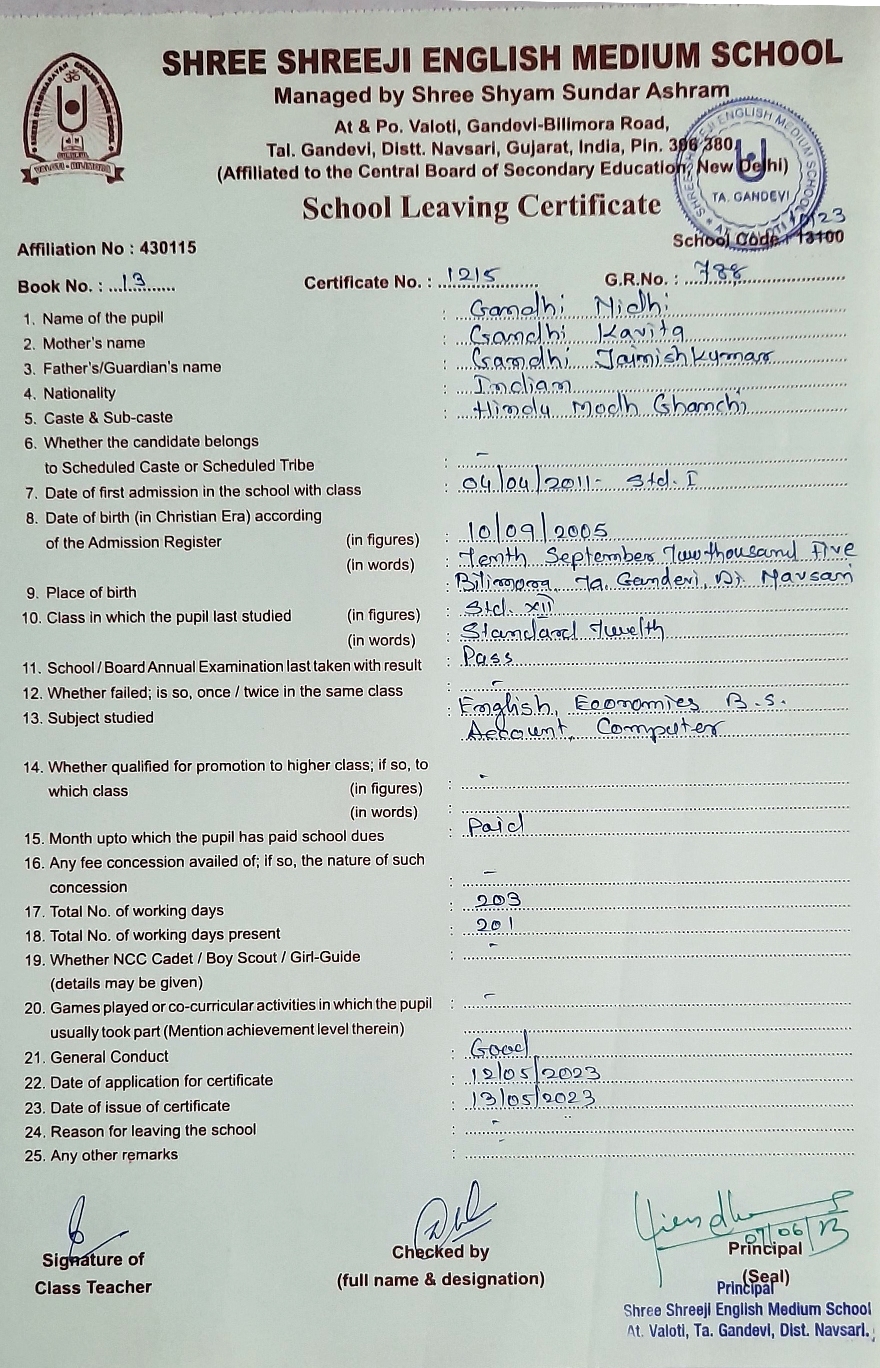 SHREE SHREEJI ENGLISH MEDIUM SCHOOL
Managed by Shree Shyam Sundar Ashram
At & Po. Valoti, Gandevi-Bilimora Road,
Tal. Gandevi, Distt. Navsari, Gujarat, India, Pin. 396 380.
(Affiliated to the Central Board of Secondary Education, New Delhi)
SHREE SHREEJI ENGLISH MEDIUM SCHOOL
TA. GANDEVI
AT. VALOTI
VALOTI - BILIMORA
School Leaving Certificate
Affiliation No : 430115
School Code : 13100
Book No. : 13 Certificate No. : 1215 G.R.No. : 788
1. Name of the pupil : Gandhi Nidhi
2. Mother's name : Gandhi Kavita
3. Father's/Guardian's name : Gandhi Jaimishkumar
4. Nationality : Indian
5. Caste & Sub-caste : Hindu Modh Ghanchi
6. Whether the candidate belongs
to Scheduled Caste or Scheduled Tribe : -
7. Date of first admission in the school with class : 04/04/2011- Std. I
8. Date of birth (in Christian Era) according
of the Admission Register (in figures) : 10/09/2005
(in words) : Tenth September Twothousand Five
9. Place of birth : Bilimora, Ta. Gandevi, Di. Navsari
10. Class in which the pupil last studied (in figures) : Std. XII
(in words) : Standard Twelth
11. School / Board Annual Examination last taken with result : Pass
12. Whether failed; is so, once / twice in the same class : -
13. Subject studied : English, Economics B.S.
Account, Computer
14. Whether qualified for promotion to higher class; if so, to
which class (in figures) : -
(in words) :
15. Month upto which the pupil has paid school dues : Paid
16. Any fee concession availed of; if so, the nature of such
concession : -
17. Total No. of working days : 203
18. Total No. of working days present : 201
19. Whether NCC Cadet / Boy Scout / Girl-Guide : -
(details may be given)
20. Games played or co-curricular activities in which the pupil : -
usually took part (Mention achievement level therein)
21. General Conduct : Good
22. Date of application for certificate : 12/05/2023
23. Date of issue of certificate : 13/05/2023
24. Reason for leaving the school : -
25. Any other remarks : -
07/06/23
Signature of Checked by Principal
Class Teacher (full name & designation) (Seal)
Principal
Shree Shreeji English Medium School
At. Valoti, Ta. Gandevi, Dist. Navsari.